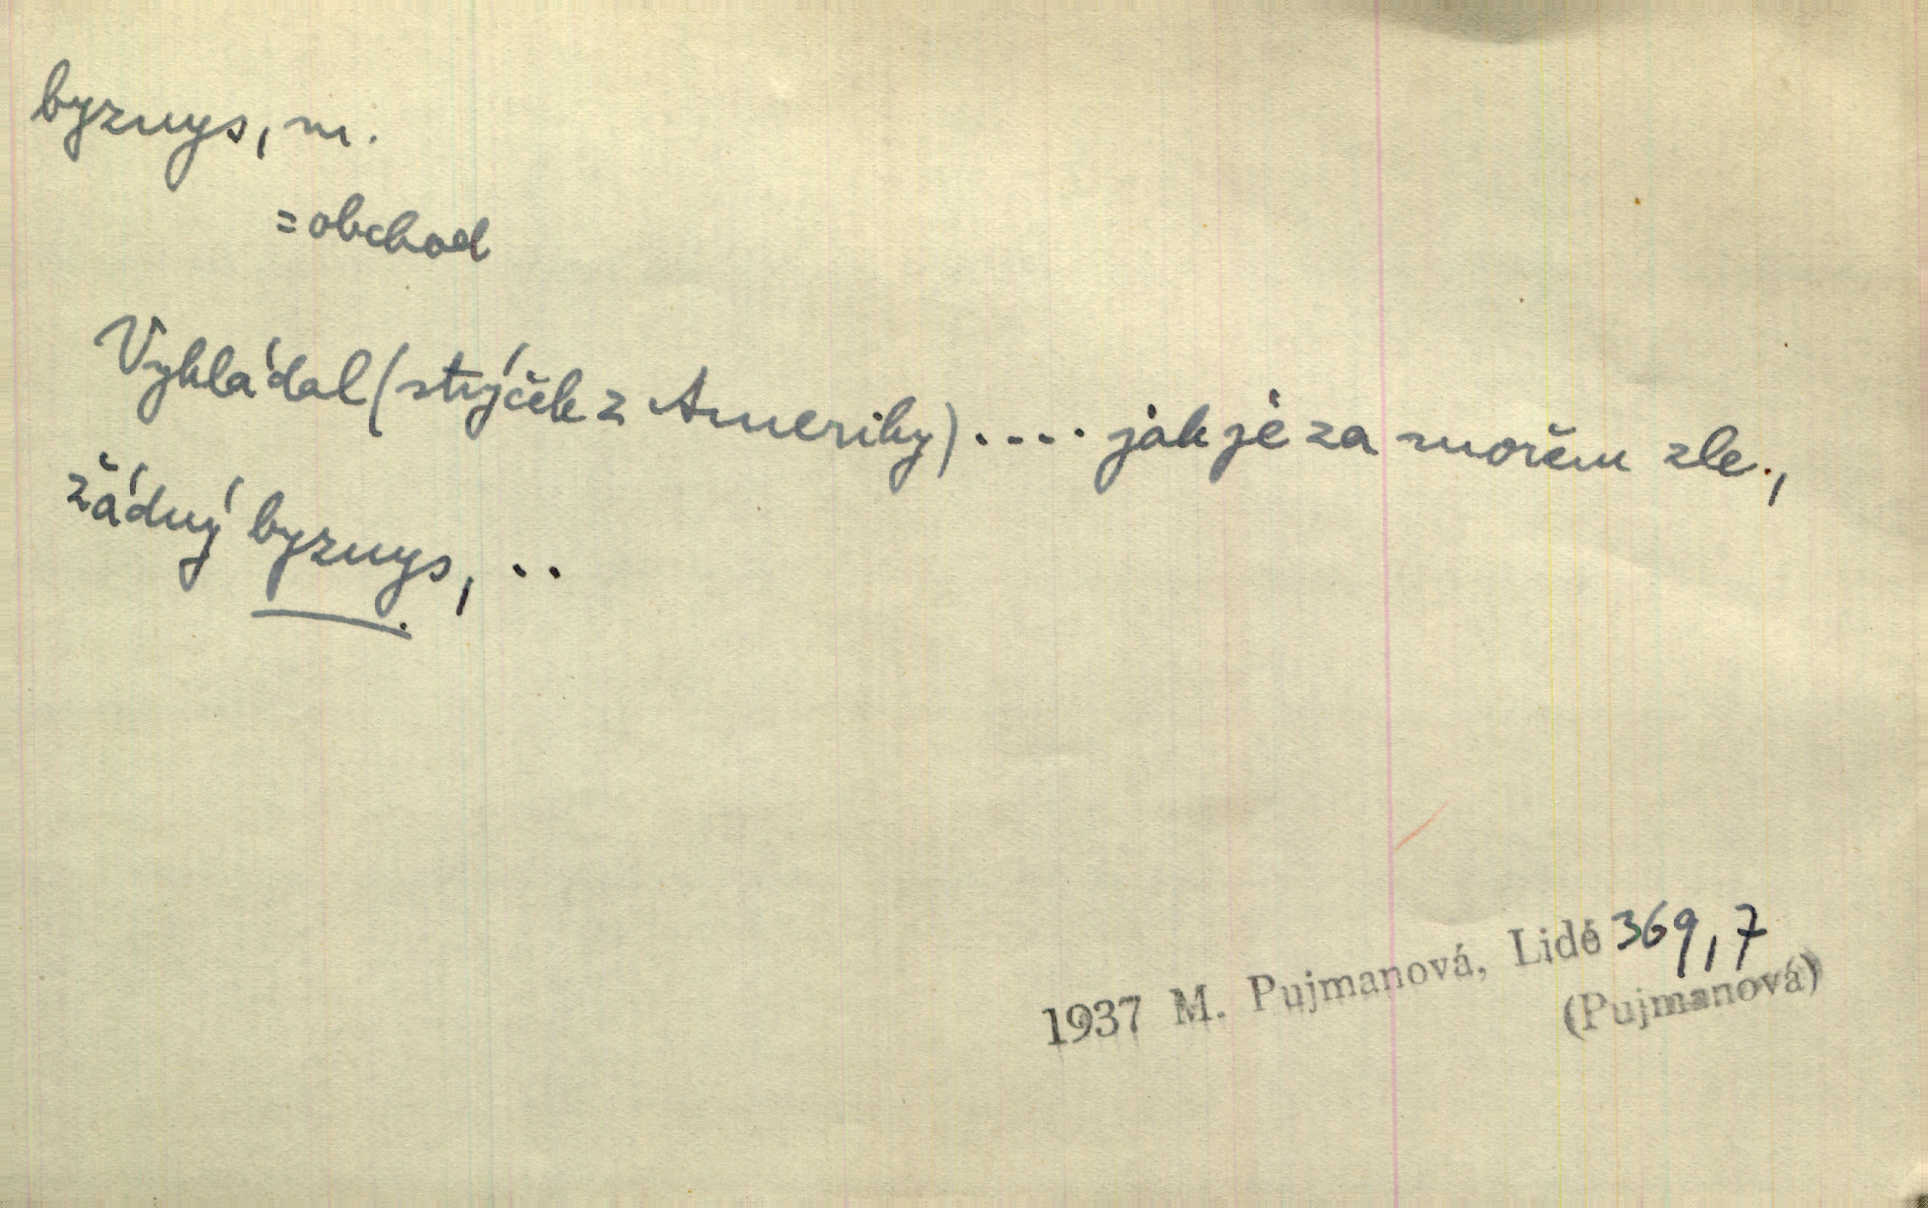 byznys, m.
= obchod
Vykládal (strýček z Ameriky) .... jak je za mořem zle.,
žádný byznys, ..
1937 M. Pujmanová, Lidé 369,7
(Pujmanová)